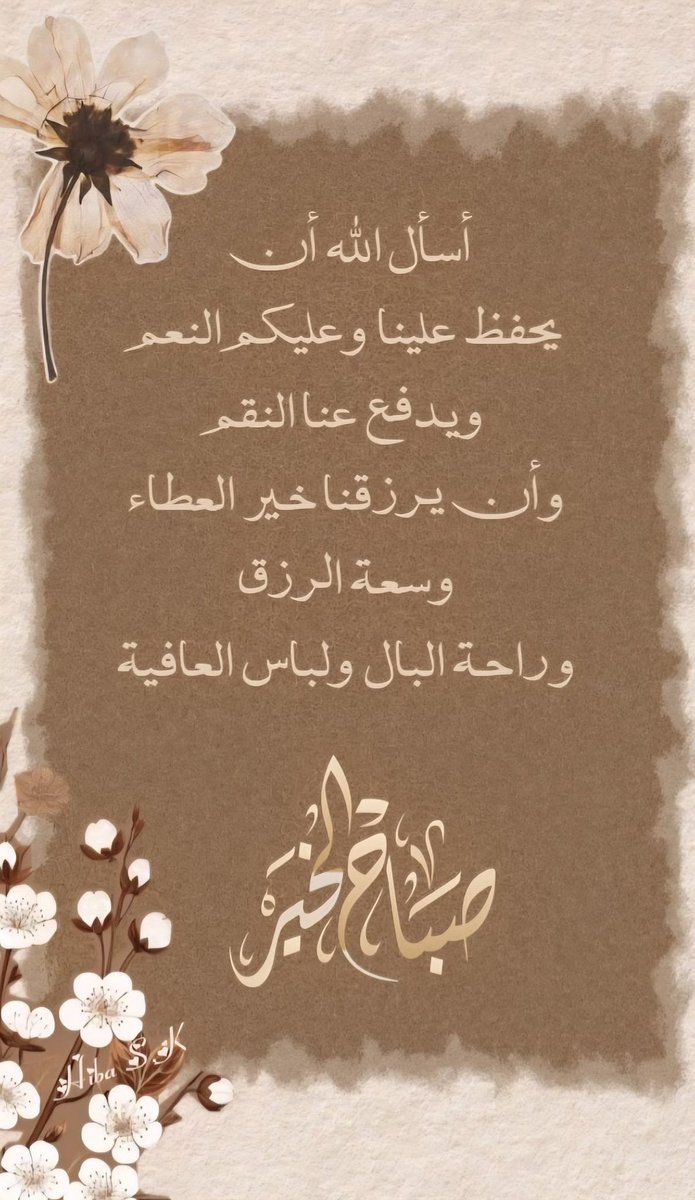 أسأل الله أن
يحفظ علينا وعليكم النعم
ويدفع عنا النقم
وأن يرزقنا خير العطاء
وسعة الرزق
وراحة البال ولباس العافية
صباح الخير
Hiba S.K